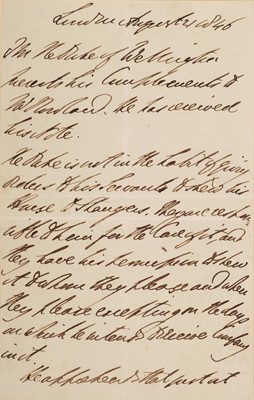 London August 21 1846
The Duke of Wellington
presents his Compliments to
He has received
his Note.
The Duke is not in the habit of giving
orders to his Servants to shew his
House to Strangers. They are respons
able to him for the Care of it, and
they have his permission to shew
it to whom they please and when
they please excepting on the days
on which he intends to receive Company
in it.
He apprehends that just at